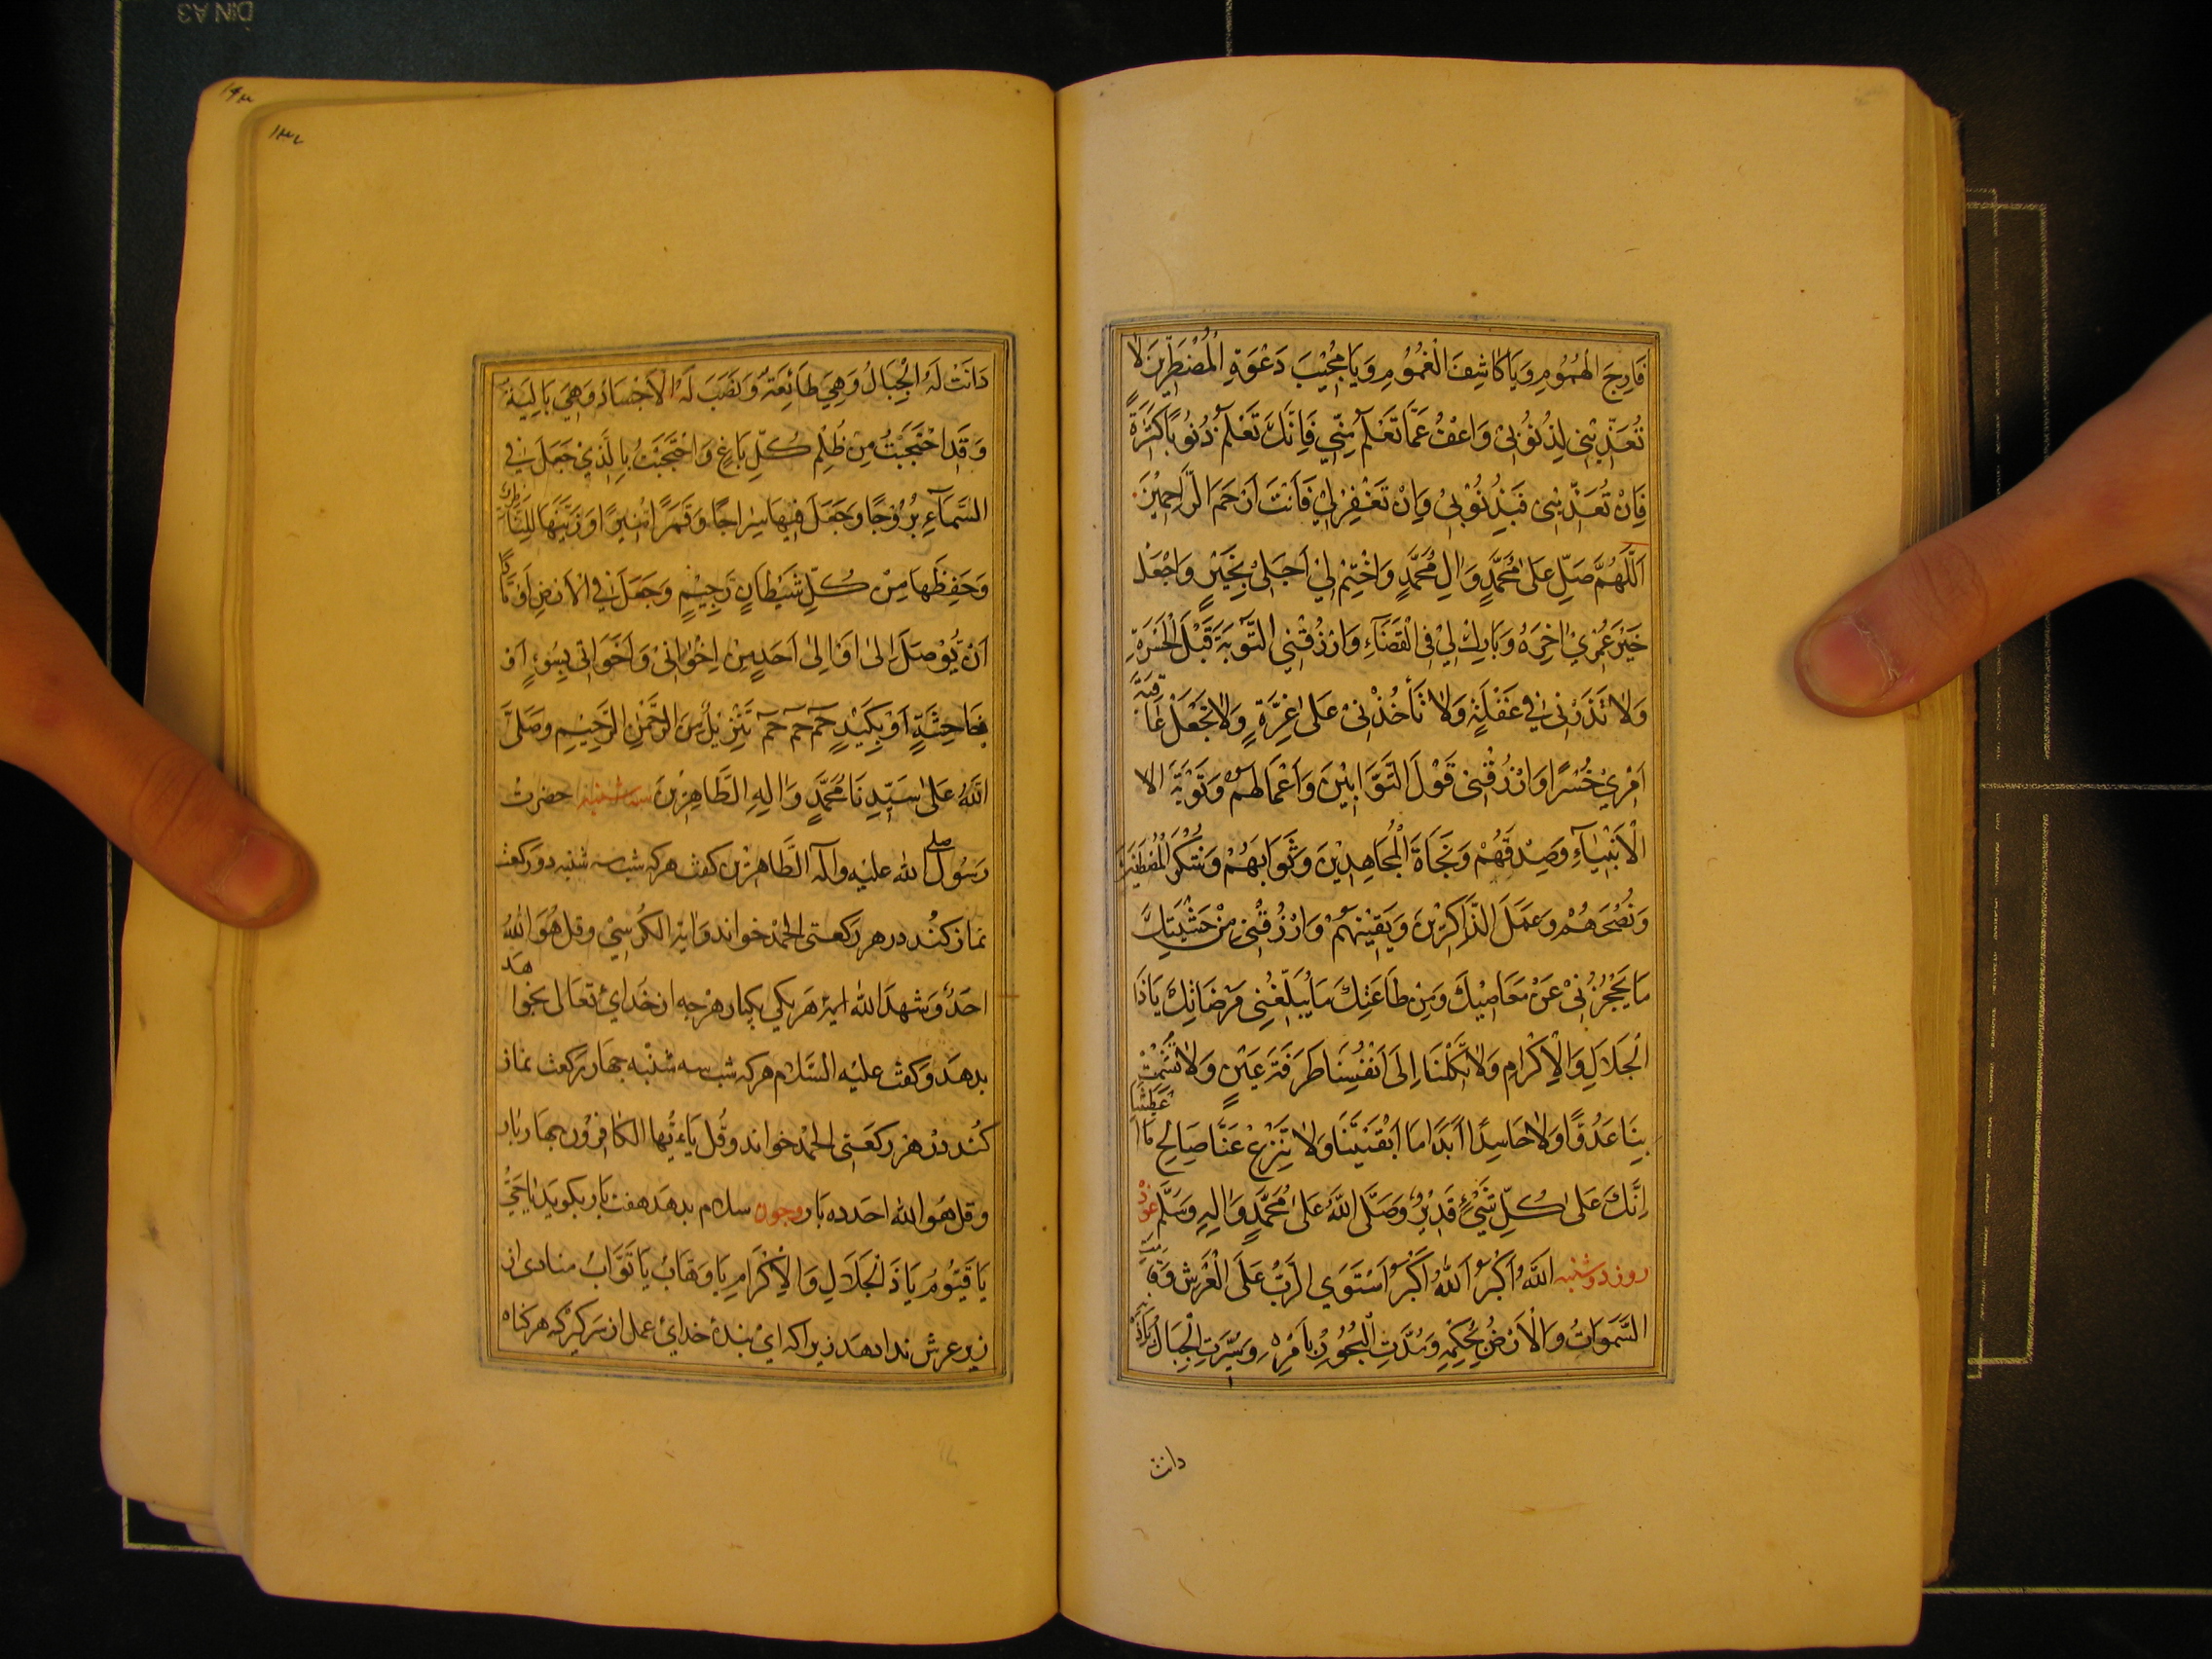 فَارِجَ الْهُمُومِ وَيَا كَاشِفَ الْغُمُوْمِ وَيَا مُجِيْبَ دَعْوَةِ الْمُضْطَرِّيْنَ لَا
تُعَذِّبْنِى لِذُنُوْبِىْ وَاعْفُ عَمَّا تَعْلَمُ مِنِّي فَاِنَّكَ تَعْلَمُ ذُنُوبًا كَثِيْرَةً
فَاِنْ تُعَذِّبْنِى فَبِذُنُوْبِىْ وَاِنْ تَغْفِرْلِيْ فَاَنْتَ اَرْحَمَ الرَّاحِمِيْنَ
اَللّٰهُمَّ صَلِّ عَلٰى مُحَمَّدٍ وَاٰلِ مُحَمَّدٍ وَاخْتِمْ لِيْ اَجَلِىْ بِخَيْرٍ وَاجْعَلْ
خَيْرَ عُمْرِيْ اٰخِرَهُ وَبَارِكْ لِيْ فِى الْقَضَآءِ وَارْزُقْنِي التَّوبَةَ قَبْلَ الْحَسْرَةِ
وَلَا تَذَرْنِى فِي غَفْلَةٍ وَلَا تَأْخُذْنِىْ عَلٰى غِرَّةٍ وَلَا تَجْعَلْ عَاقِبَةَ
اَمْرِيْ خُسْرًا وَارْزُقْنِى قَوْلَ التَّوَّابِيْنَ وَاَعْمَالَهُمْ وَتَوْبَةَ الا
الْاَنْبِيَآءِ وَصِدْقَهُمْ وَنَجَاةَ الْمُجَاهِدِيْنَ وَثَوَابَهُمْ وَشُكْرَ الْمُصْطَفَيْنَ
وَنُصْحَهُمْ وَعَمَلَ الذَّاكِرِيْنَ وَيَقِيْنَهُمْ وَارْزُقْنِى مِنْ خَشْيَتِكَ
مَا يَحْجُزُنِىْ عَنْ مَعَاصِيْكَ وَمِنْ طَاعَتِكَ مَا يُبَلِّغُنِى مَرْضَاتِكَ يَا ذَا
الْجَلَالِ وَالْاِكْرَامِ وَلَا تَكِلْنَا اِلَى اَنْفُسِنَا طَرْفَةَ عَيْنٍ وَلَا تُشْمِتْ
بِنَا عَدُوًّا وَلَا حَاسِدًا اَبَدًا مَا اَبْقَيْتَنَا وَلَا تَنْزِعْ عَنَّا صَالِحَ مَا اَعْطَيْتَنَا
اِنَّكَ عَلٰى كُلِّ شَيْءٍ قَدِيْرٌ وَصَلَّى اللّٰهُ عَلٰى مُحَمَّدٍ وَاٰلِهٖ وَسَلَّمَ عوذ
روز دوشنبه اَللّٰهُ اَكْبَرُ اَللّٰهُ اَكْبَرُ اسْتَوَي الرَّبُّ عَلَى الْعَرْشِ وَقَامَتِ
السَّمٰوَاتُ وَالْاَرْضُ بِحُكْمِهٖ وَمُدَّتِ الْبُحُوْرُ بِاَمْرِهٖ وَسُيِّرَتِ الْجِبَالُ بِاِذْنِهٖ
دانت
دَانَتْ لَهُ الْجِبَالُ وَهِيَ طَائِعَةٌ وَنَصَبَ لَهُ الْاَجْسَادُ وَهِيَ بَالِيَةٌ
وَقَدِ احْتَجَبْتُ مِنْ ظُلْمِ كُلِّ بَاغٍ وَاحْتَجَبْتُ بِالَّذِيْ جَعَلَ فِي
السَّمَآءِ بُرُوْجًا وَجَعَلَ فِيهَا سِرَاجًا وَقَمَرًا مُنِيرًا وَزَيَّنَهَا لِلنَّاظِرِيْنَ
وَحَفِظَهَا مِنْ كُلِّ شَيْطَانٍ رَجِيْمٍ وَجَعَلَ فِي الْاَرْضِ اَوْتَادًا
اَنْ يُوْصَلَ اِلَىَّ اَوْ اِلٰى اَحَدٍ مِنْ اِخْوَانِىْ وَاَخَوَاتِى بِسُوءٍ اَوْ
فَاحِشَةٍ اَوْ بِكَيْدٍ حٰمٓ حٰمٓ حٰمٓ تَنْزِيْلٌ مِنَ الرَّحْمٰنِ الرَّحِيْمِ وَصَلَّى
اللّٰهُ عَلٰى سَيِّدِنَا مُحَمَّدٍ وَاٰلِهِ الطَّاهِرِيْنَ سه شنبه حضرت
رَسُول صلي الله عليه وآله الطَّاهِرِيْن كفت هركه شب سه شنبه دو ركعت
نماز كُنُد در هر ركعتى الحمدْ خواند وايَةِ الكُرْسِيْ وقل هُوَ اللهُ
اَحَدٌ وَشَهِدَ اللهُ اين هريكي يكبار هرچه از خُدايْ تَعَالى بخواهد
بدهَد وكفت عليه السَّلام هركه شب سه شنبه چهار ركعت نماز
كُند در هر ركعَتى الحمدْ خواند وقُل يَا ءَيُّهَا الكافِرُون چهار بار
وقل هُوَ الله احَد ده بَار وچون سلام بدهد هفت بَار بكويد يَاحَىُّ
يَا قَيُّومُ يَا ذَالْجَلَالِ وَالْاِكْرَامِ يَا وَهَّابُ يَا تَوَّابُ منادى از
زير عرش ندا دهَد زيرا كه ايْ بندهٔ خدايْ عمل از سَر كير كه هر كناه